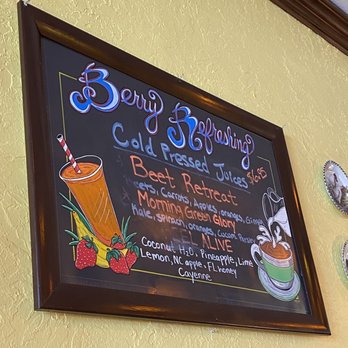 Berry Refreshing
Cold Pressed Juices $6.95
Beet Retreat
Beets, Carrots, Apples, oranges, Ginger
Morning Green Glory
Kale, spinach, oranges, Cucum, Parsley
ALIVE
Coconut H2O, Pineapple, Lime
Lemon, NC apple, FL honey
Cayenne